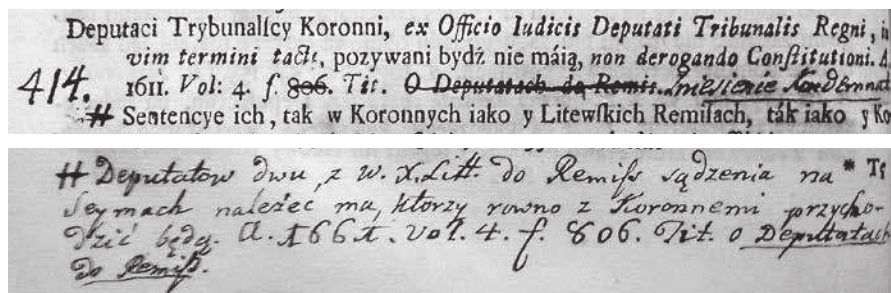 Deputaci Trybunalſcy Koronni, ex Officio Iudicis Deputati Tribunalis Regni,
vim termini tacti, pozywani bydź nie máią, non derogando Conſtitutioni.
414. 1611. Vol: 4. f. 806. Tit. O Deputatach do Remis. zniesienie Kondemnat
# Sentencye ich, tak w Koronnych iako y Litewſkich Remiſach, ták iako y Ko
# Deputatow dwu, z W. X. Litt. do Remiſs sądzenia na * T
Seymach należec ma, ktorzy rowno z Koronnemi przycho-
dzić będą. A. 1661. vol. 4. f. 806. Tit. o Deputatach
do Remiſs.